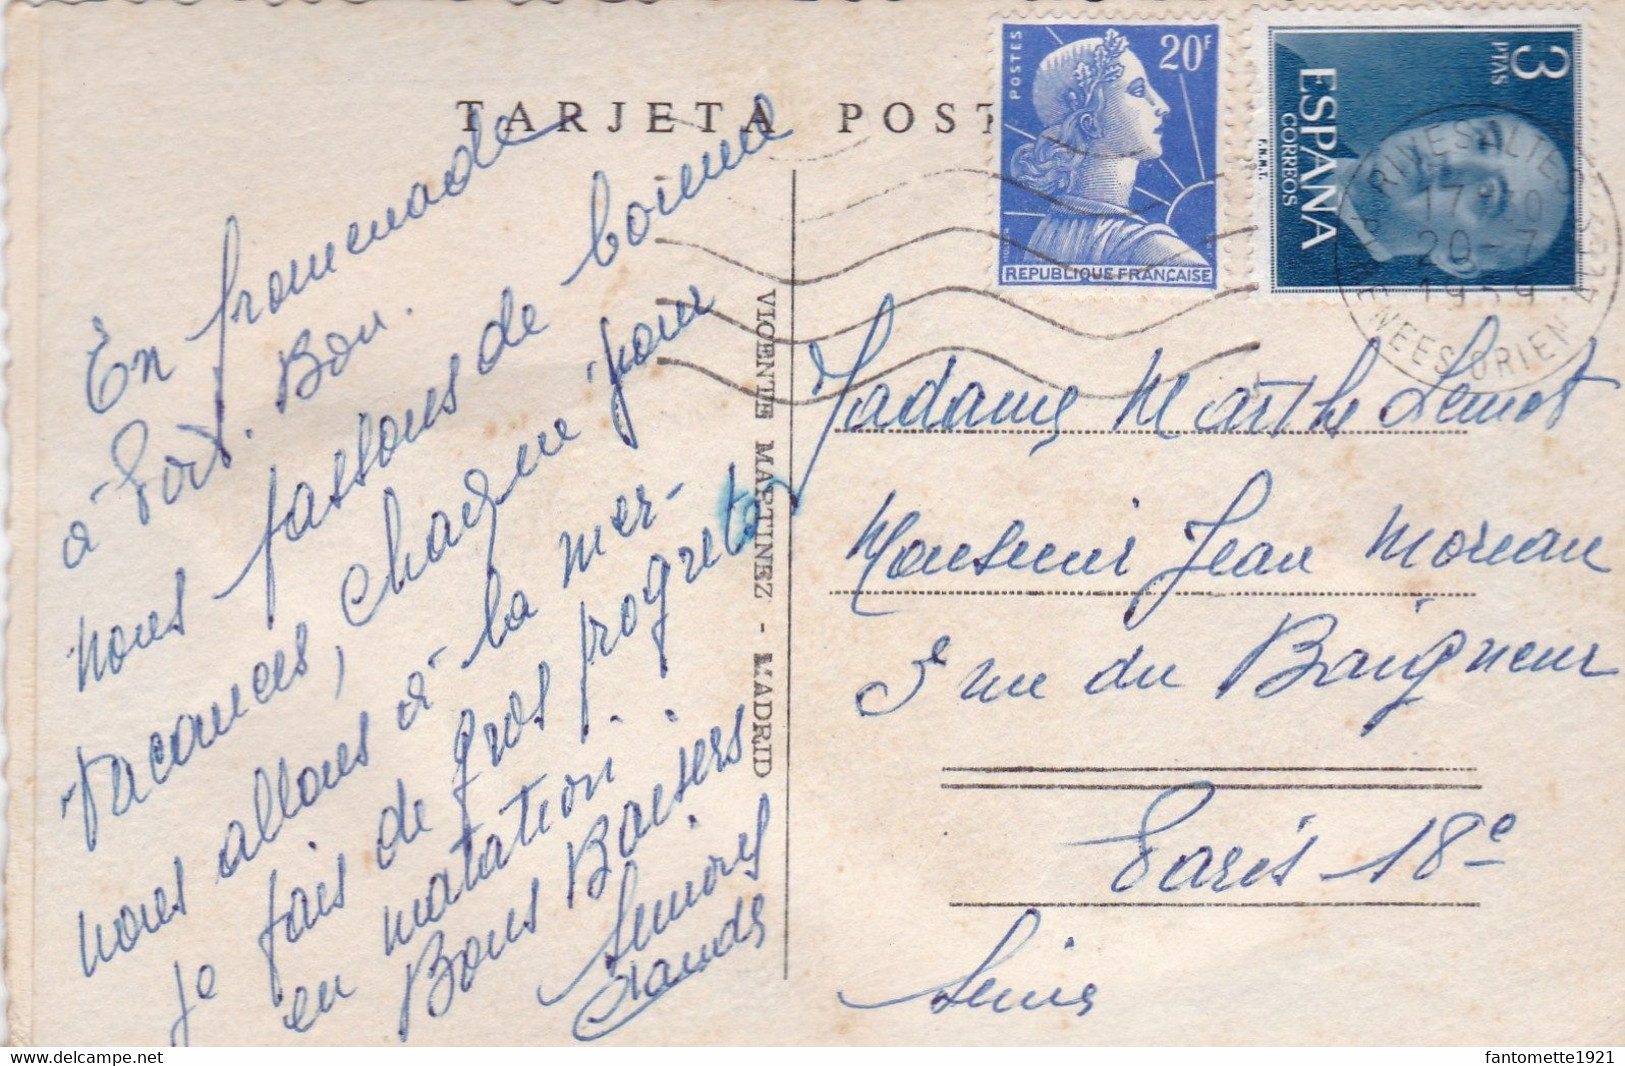 TARJETA POST
En promenade
à Port. Bou.
nous passons de bonne
vacances, chaque jour
nous allons à la mer-
je fais de gros progrets
en natation.
Bons Baisers
Claude
VICENTE MARTINEZ - MADRID
POSTES
20F
REPUBLIQUE FRANÇAISE
3
PTAS
ESPAÑA
CORREOS
F.N.M.T.
RIVESALTES
17H30
20-7
1959
Madame Marthe Lemot
Monsieur Jean Moreau
5 rue du Baigneur
Paris 18e
Seine
fantomette1921